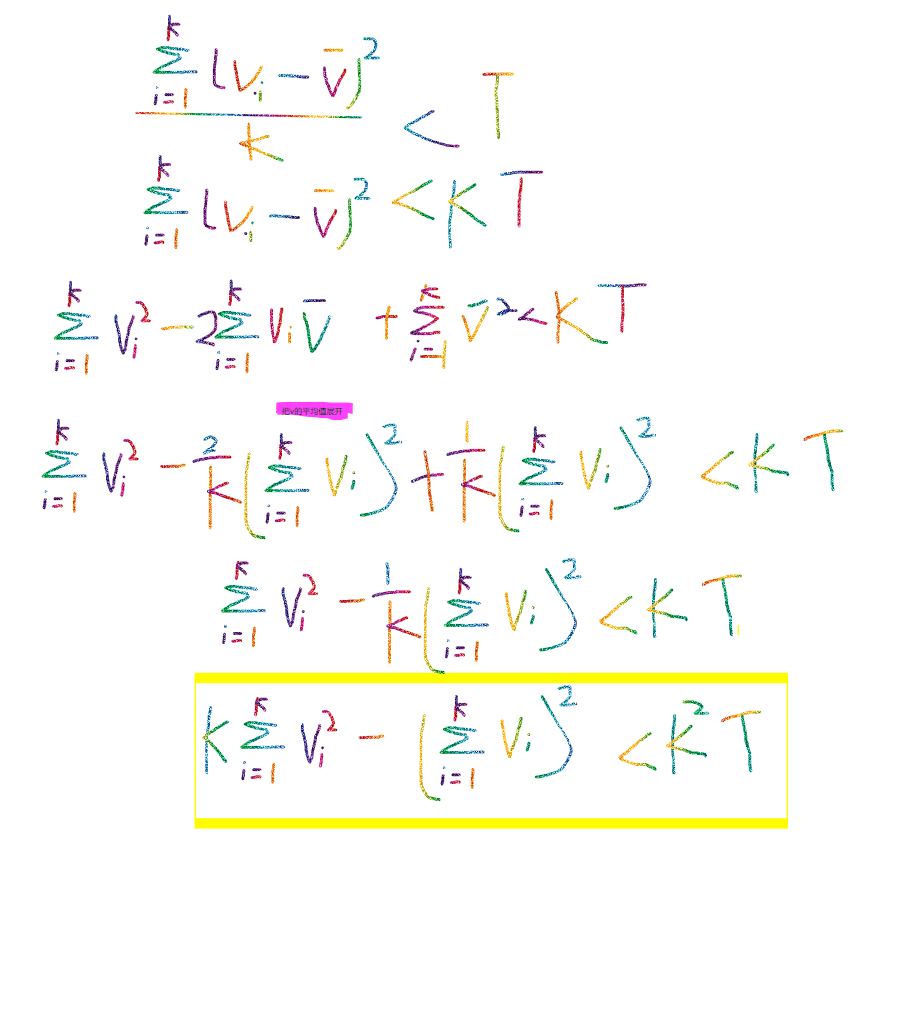 \frac{\sum_{i=1}^{k} (v_i - \bar{v})^2}{k} < T
\sum_{i=1}^{k} (v_i - \bar{v})^2 < kT
\sum_{i=1}^{k} v_i^2 - 2\sum_{i=1}^{k} v_i \bar{v} + \sum_{i=1}^{k} \bar{v}^2 < kT
把v的平均值展开
\sum_{i=1}^{k} v_i^2 - \frac{2}{k} \left( \sum_{i=1}^{k} v_i \right)^2 + \frac{1}{k} \left( \sum_{i=1}^{k} v_i \right)^2 < kT
\sum_{i=1}^{k} v_i^2 - \frac{1}{k} \left( \sum_{i=1}^{k} v_i \right)^2 < kT
k \sum_{i=1}^{k} v_i^2 - \left( \sum_{i=1}^{k} v_i \right)^2 < k^2 T